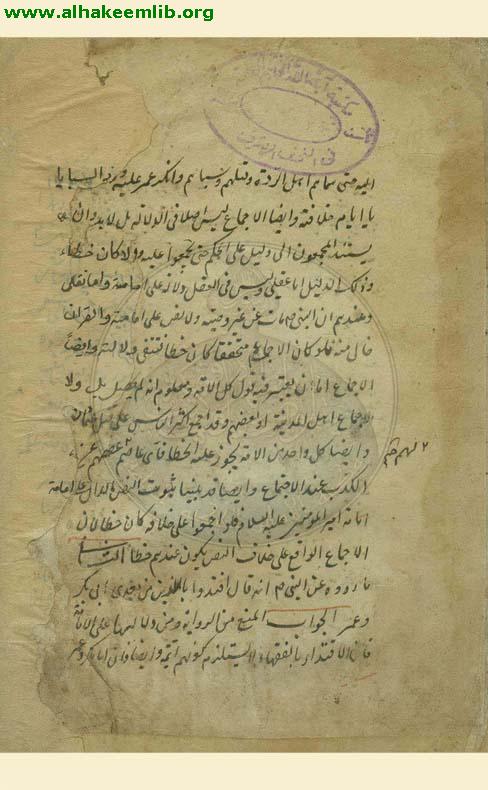 www.alhakeemlib.org
اليه حتى سماهم اهل الردة وقتلهم وسباهم وانكر عمر عليه ورد السبايا
بايام خلافته وايضا الاجماع ليس اصلا في الدلالة بل لا بد وان
يستند المجمعون الى دليل على الحكم حتى يجتمعوا عليه والا كان خطاء
وذلك الدليل اما عقلي وليس في العقل دلالة على امامته واما نقلي
وعندهم ان النبي ص مات عن غير وصية ولا نص على امام والقران
خال منه فلو كان الاجماع متحققا كان خطا فتنتفي دلالته وايضا
الاجماع اما ان يعتبر فيه قول كل الامة ومعلوم انه لم يحصل بل ولا
اجماع اهل المدينة او بعضهم وقد اجمع اكثر الناس على قتل عثمان
وايضا كل واحد من الامة يجوز عليه الخطا فاي عاصم لهم عن
الكذب عند الاجتماع وايضا قد بينا ثبوت النص الدال على امامة
امير المومنين عليه السلام فلو اجمعوا على خلافه كان خطا لان
الاجماع الواقع على خلاف النص يكون عندهم خطا الثاني
ما رووه عن النبي ص انه قال اقتدوا باللذين من بعدي ابي بكر
وعمر الجواب المنع من الرواية ومن دلالتها على الامامة
فان الاقتداء بالفقهاء لا يستلزم كونهم ائمة وايضا فان ابا بكر وعمر